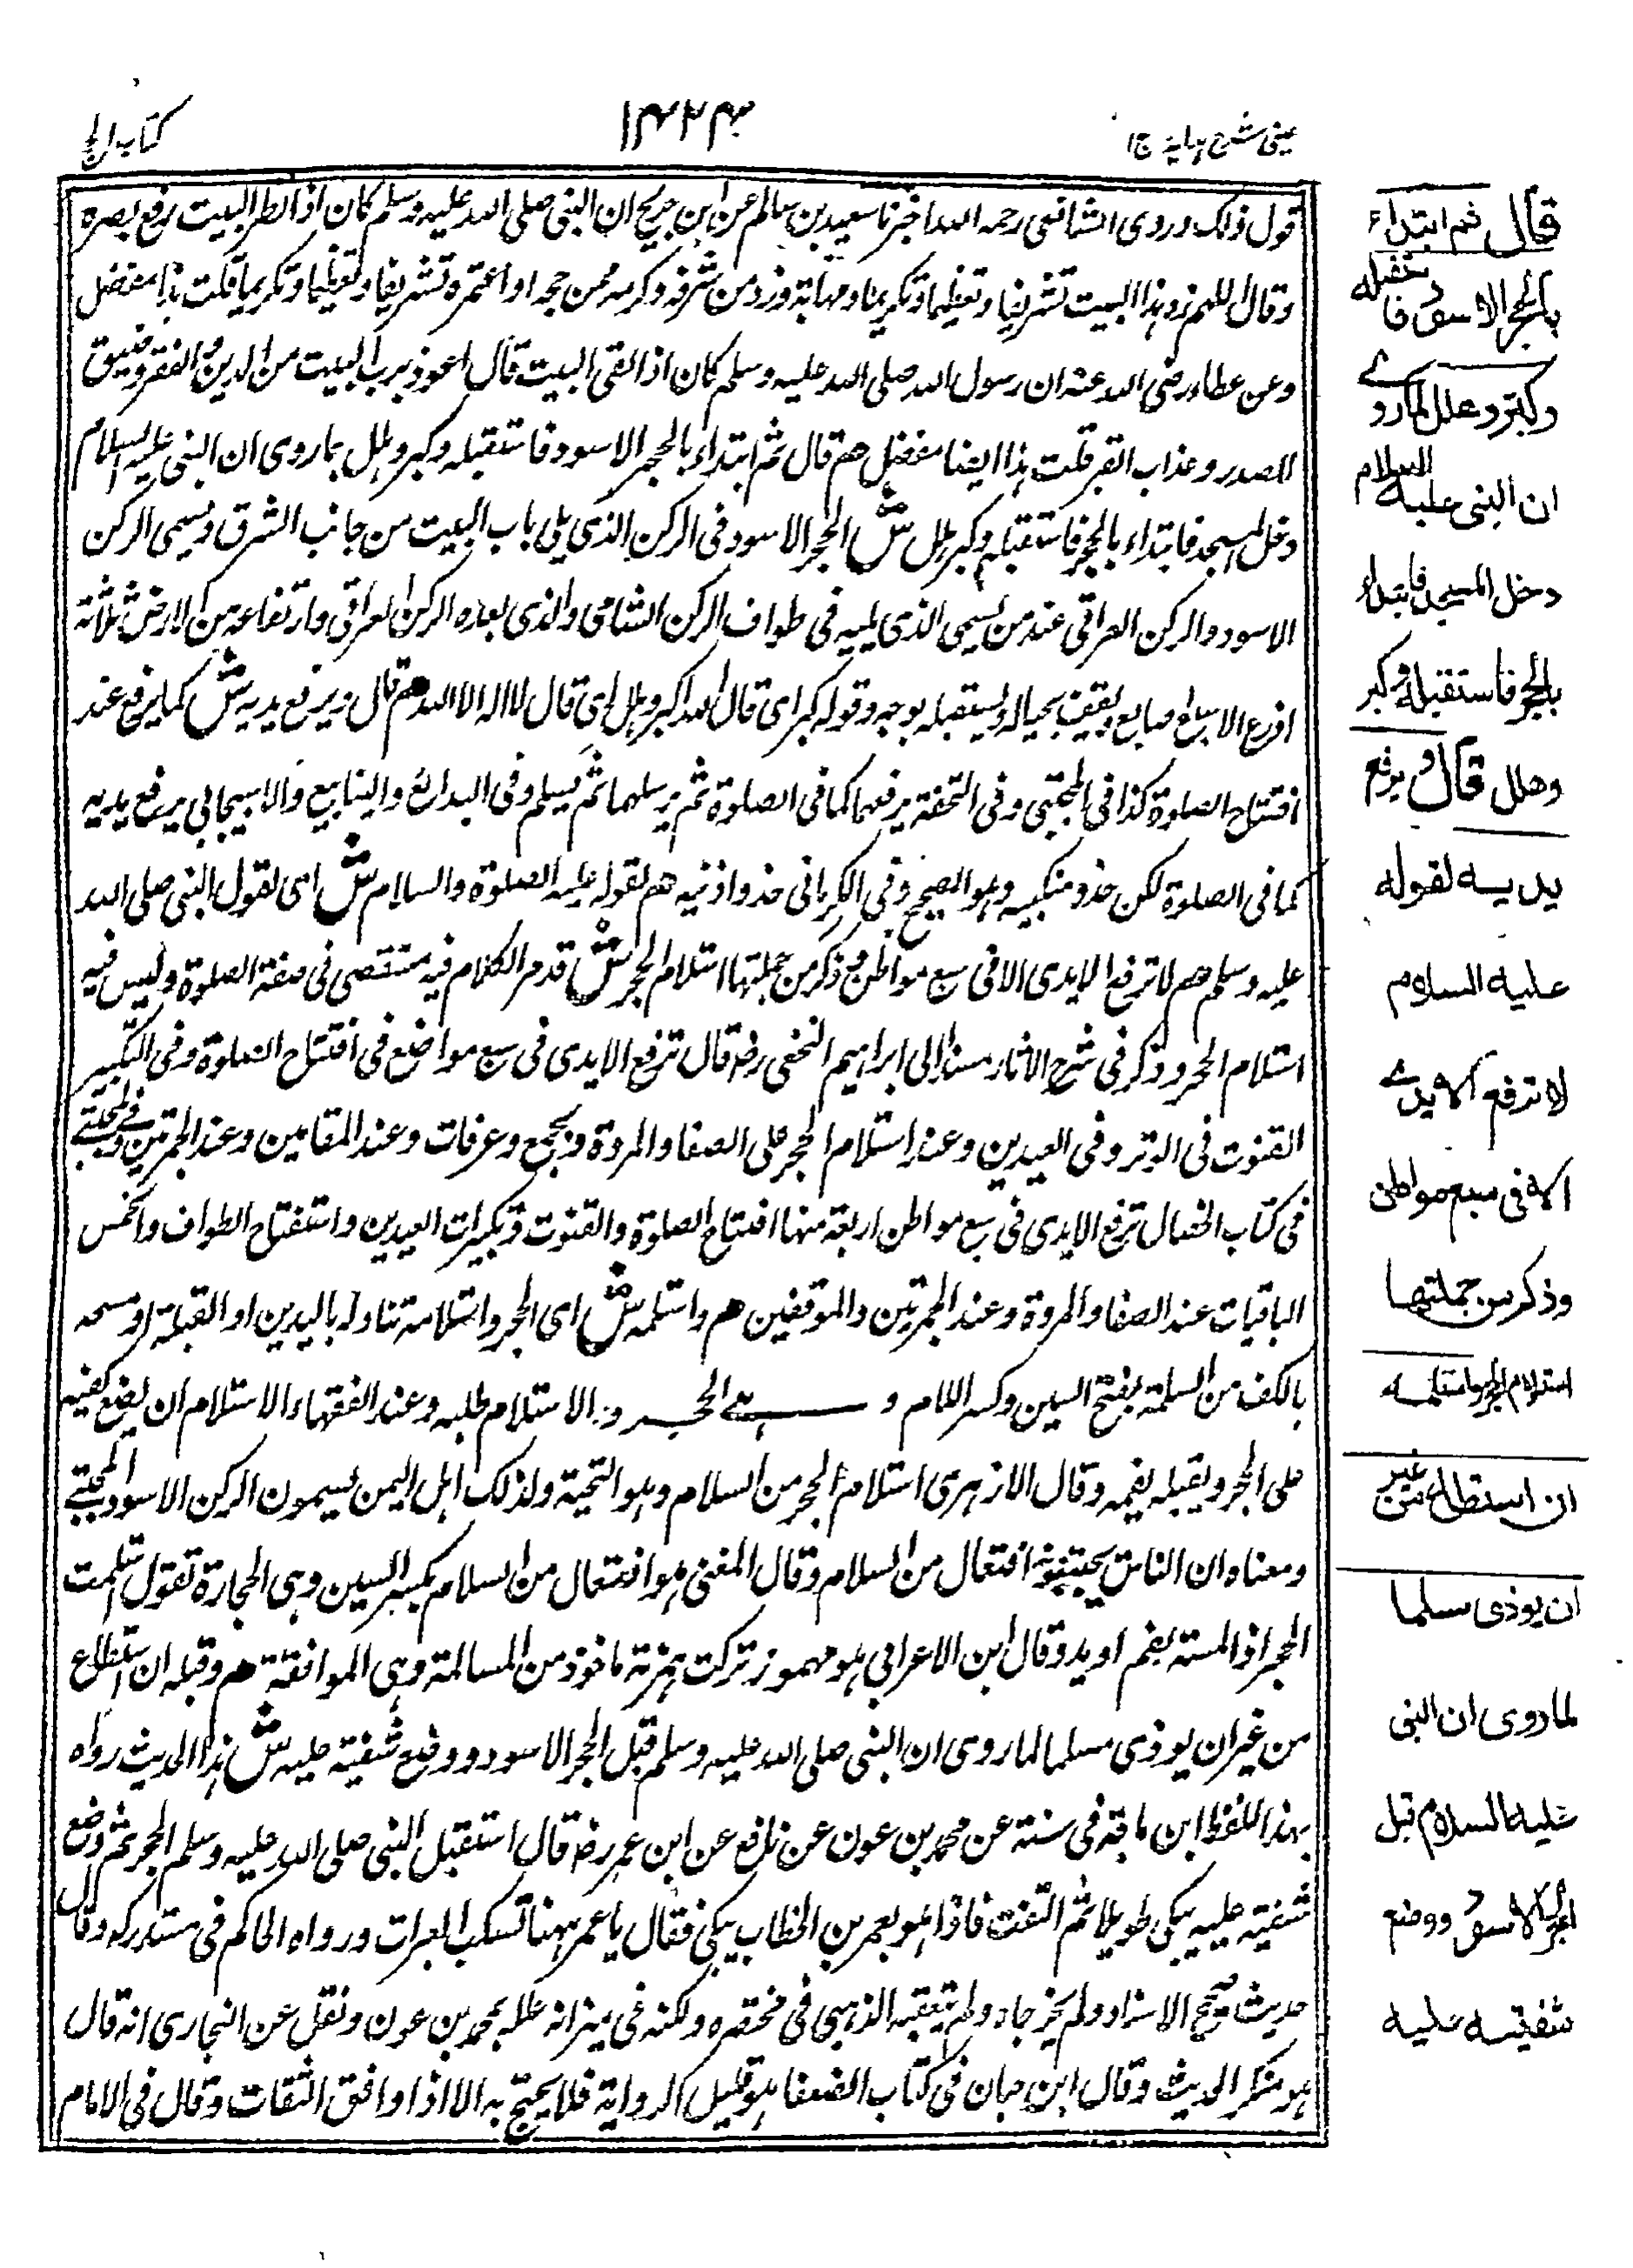 عینی شرح ہدایہ ج۱
۱۴۲۴
کتاب الحج
قول ذلک وروی الشافعی رحمہ اللہ اخبرنا سعید بن سالم عن ابن جریج ان النبی صلی اللہ علیہ وسلم کان اذا نظر البیت رفع بصرہ
وقال اللہم زد ہذا البیت تشریفا وتعظیما وتکریما ومہابۃ وزد من شرفہ وکرمہ ممن حجہ او اعتمرہ تشریفا وتعظیما وتکریما قلت ہذا معضل
وعن عطاء رضی اللہ عنہ ان رسول اللہ صلی اللہ علیہ وسلم کان اذا لقی البیت قال اعوذ برب البیت من الدین والفقر وضیق
الصدر وعذاب القبر قلت ہذا ایضا معضل ھم قال ثم ابتداء بالحجر الاسود فاستقبلہ وکبر وہلل لما روی ان النبی علیہ السلام
دخل المسجد فابتداء بالحجر فاستقبلہ وکبر وہلل ش الحجر الاسود فی الرکن الذی یلی باب البیت من جانب الشرق ویسمی الرکن
الاسود والرکن العراقی عند من یسمی الذی یلیہ فی طواف الرکن الشامی والذی بعدہ الرکن العراقی وارتفاعہ من الارض ثلاثۃ
اذرع الا سبع اصابع ویقف بحیالہ ویستقبلہ بوجہہ وقولہ کبر ای قال اللہ اکبر وہلل ای قال لا الہ الا اللہ ھم قال ویرفع یدیہ ش کما یرفع عند
افتتاح الصلوۃ کذا فی المجتبی وفی التحفۃ یرفعہما کما فی الصلوۃ ثم یرسلہما ثم یستلم وفی البدائع والینابیع والاسبیجابی یرفع یدیہ
کما فی الصلوۃ لکن حذو منکبیہ وہو الصحیح وفی الکرمانی حذو اذنیہ ھم لقولہ علیہ الصلوۃ والسلام ش ای لقول النبی صلی اللہ
علیہ وسلم ھم لا ترفع الایدی الا فی سبع مواطن وذکر من جملتہا استلام الحجر ش قدم الکلام فیہ مستقصی فی صفۃ الصلوۃ ولیس فیہ
استلام الحجر وذکر فی شرح الاثار مسندا الی ابراہیم النخعی رضہ قال ترفع الایدی فی سبع مواضع فی افتتاح الصلوۃ وفی التکبیر
القنوت فی الوتر وفی العیدین وعند استلام الحجر علی الصفا والمروۃ وبجمع وعرفات وعند المقامین وعند الجمرتین وفی المجتبی
فی کتاب الخصال ترفع الایدی فی سبع مواطن اربعۃ منہا افتتاح الصلوۃ والقنوت وتکبیرات العیدین واستفتاح الطواف والخمس
الباقیات عند الصفا والمروۃ وعند الجمرتین والموقفین ھم واستلمہ ش ای الحجر واستلامہ تناولہ بالیدین او القبلۃ او مسحہ
بالکف من السلمۃ بفتح السین وکسر اللام و ہی الحجر والاستلام طلبہ وعند الفقہاء الاستلام ان یضع کفیہ
علی الحجر ویقبلہ بفمہ وقال الازہری استلام الحجر من السلام وہو التحیۃ ولذلک اہل الیمن یسمون الرکن الاسود المحیی
ومعناہ ان الناس یحیونہ افتعال من السلام وقال المغنی ہو افتعال من السلام بکسر السین وہی الحجارۃ تقول استلمت
الحجر اذا لمستہ بفم او ید وقال ابن الاعرابی ہو مہموز ترکت ہمزتہ ماخوذ من المسالمۃ وہی الموافقۃ ھم وقبلہ ان استطاع
من غیر ان یوذی مسلما لما روی ان النبی صلی اللہ علیہ وسلم قبل الحجر الاسود ووضع شفتیہ علیہ ش ہذا الحدیث رواہ
بہذا اللفظ ابن ماجۃ فی سننہ عن محمد بن عون عن نافع عن ابن عمر رضہ قال استقبل النبی صلی اللہ علیہ وسلم الحجر ثم وضع
شفتیہ علیہ یبکی طویلا ثم التفت فاذا ہو بعمر بن الخطاب یبکی فقال یا عمر ہہنا تسکب العبرات ورواہ الحاکم فی مستدرکہ وقال
حدیث صحیح الاسناد ولم یخرجاہ ولم یتعقبہ الذہبی فی مختصرہ ولکنہ فی میزانہ عللہ بمحمد بن عون ونقل عن البخاری انہ قال
ہو منکر الحدیث وقال ابن حبان فی کتاب الضعفا ہو قلیل الروایۃ فلا یحتج بہ الا اذا وافق الثقات وقال فی الامام
قال ثم ابتداء
بالحجر الاسود فاستقبلہ
وکبر وھلل لما روے
ان النبی علیہ السلام
دخل المسجد فابتداء
بالحجر فاستقبلہ وکبر
وھلل قال ویرفع
یدیہ لقولہ
علیہ السلام
لا ترفع الایدے
الا فی سبع مواطن
وذکر من جملتھا
استلام الحجر واستلمہ
ان استطاع من غیر
ان یوذی مسلما
لما روی ان النبی
علیہ السلام قبل
الحجر الاسود ووضع
شفتیہ علیہ